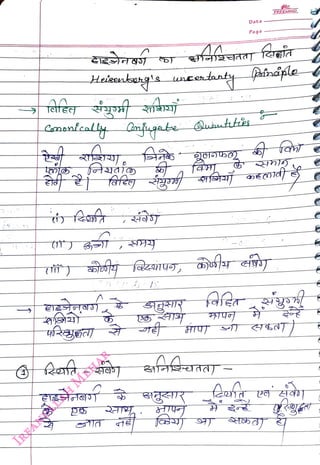 Date
Page
हाइजेनबर्ग का अनिश्चितता सिद्धांत
Heisenberg's uncertanty Principle
→ विहित संयुग्मी राशियाँ
Canonically Conjugate Quantities :-
ऐसी राशियां जिनके गुणनफल की विमा
प्लांक नियतांक की विमा के समान
होती है। विहित संयुग्मी राशियाँ कहलाती हैं
(i) स्थिति , संवेग
(ii) ऊर्जा , समय
(iii) कोणीय विस्थापन, कोणीय संवेग
→ हाइजेनबर्ग के अनुसार विहित संयुग्मी
राशियों के एक साथ मापन में इन्हें
परिशुद्धता से नही मापा जा सकता।
① स्थिति संवेग अनिश्चितता -
हाइजेनबर्ग के अनुसार स्थिति एवं संवेग
के एक साथ मापन में इन्हें परिशुद्धता
से ज्ञात नहीं किया जा सकता है।